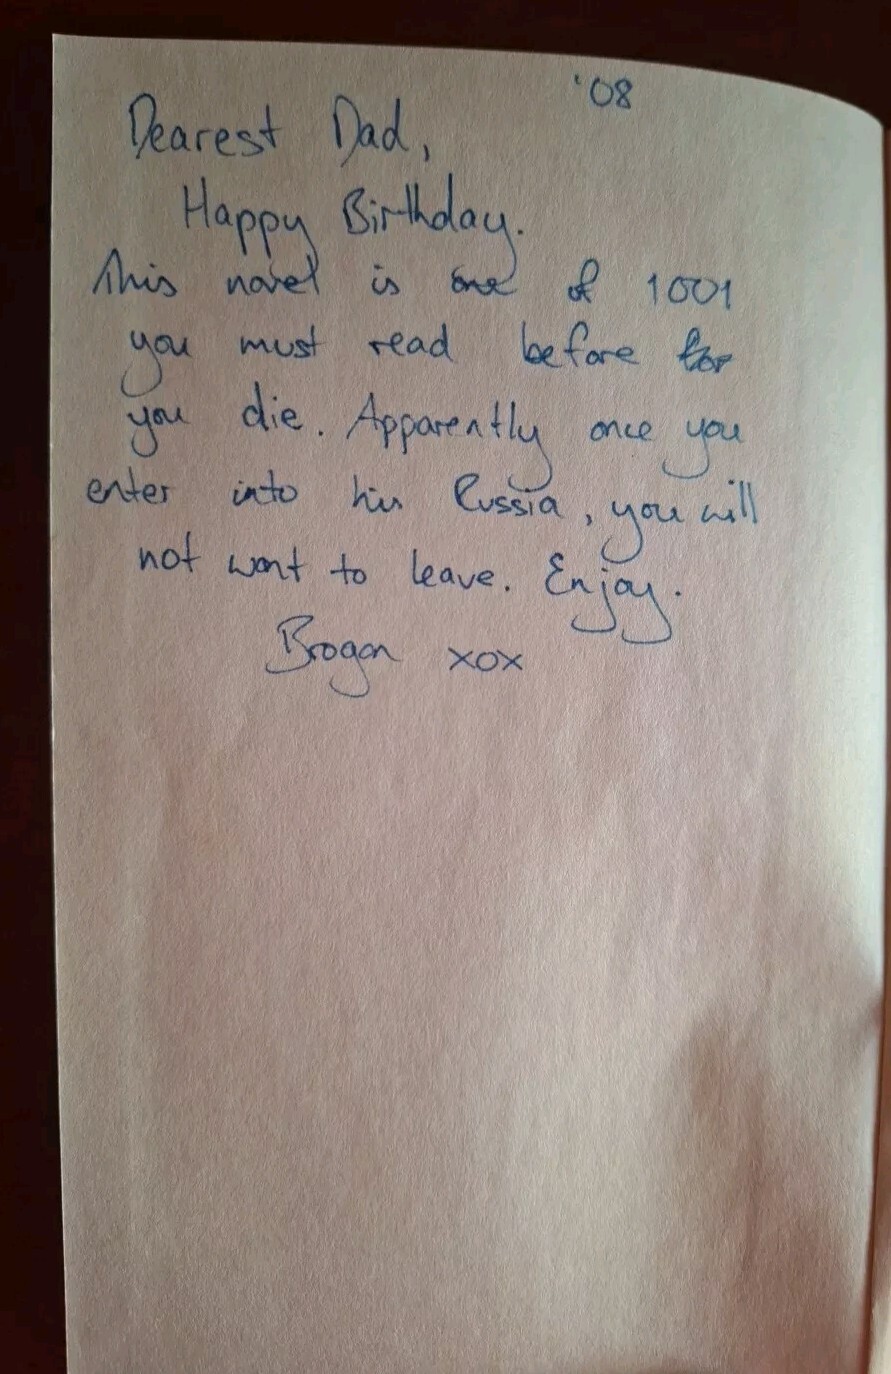 '08
Dearest Dad,
Happy Birthday.
This novel is one of 1001
you must read before
you die. Apparently once you
enter into his Russia, you will
not want to leave. Enjoy.
Brogan xox